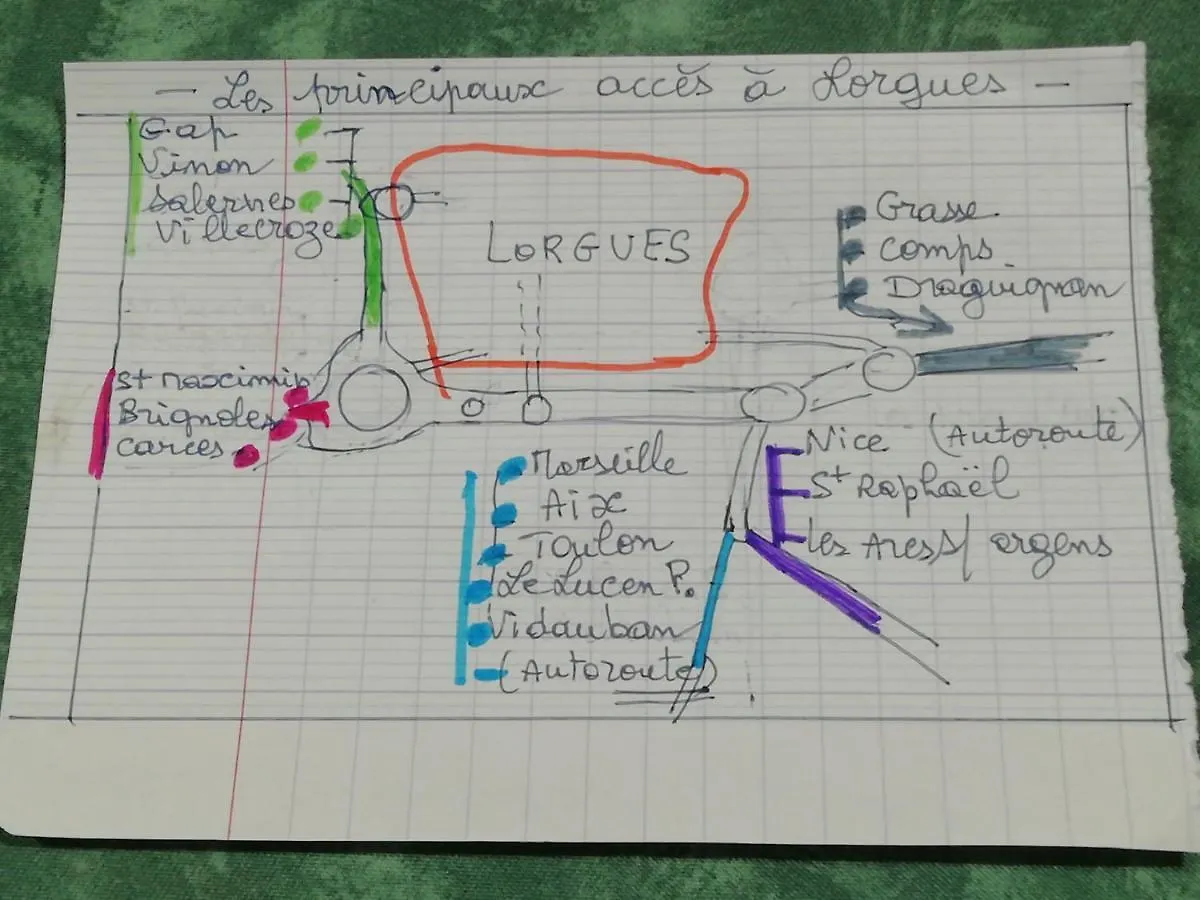 - Les principaux accès à Lorgues -
Gap
Vinon
Salernes
Villecroze
LORGUES
Grasse
Comps
Draguignan
St Maximin
Brignoles
Carces
Marseille
Aix
Toulon
Le Luc en P.
Vidauban
(Autoroute)
Nice (Autoroute)
St Raphaël
Les Arcs S/ argens